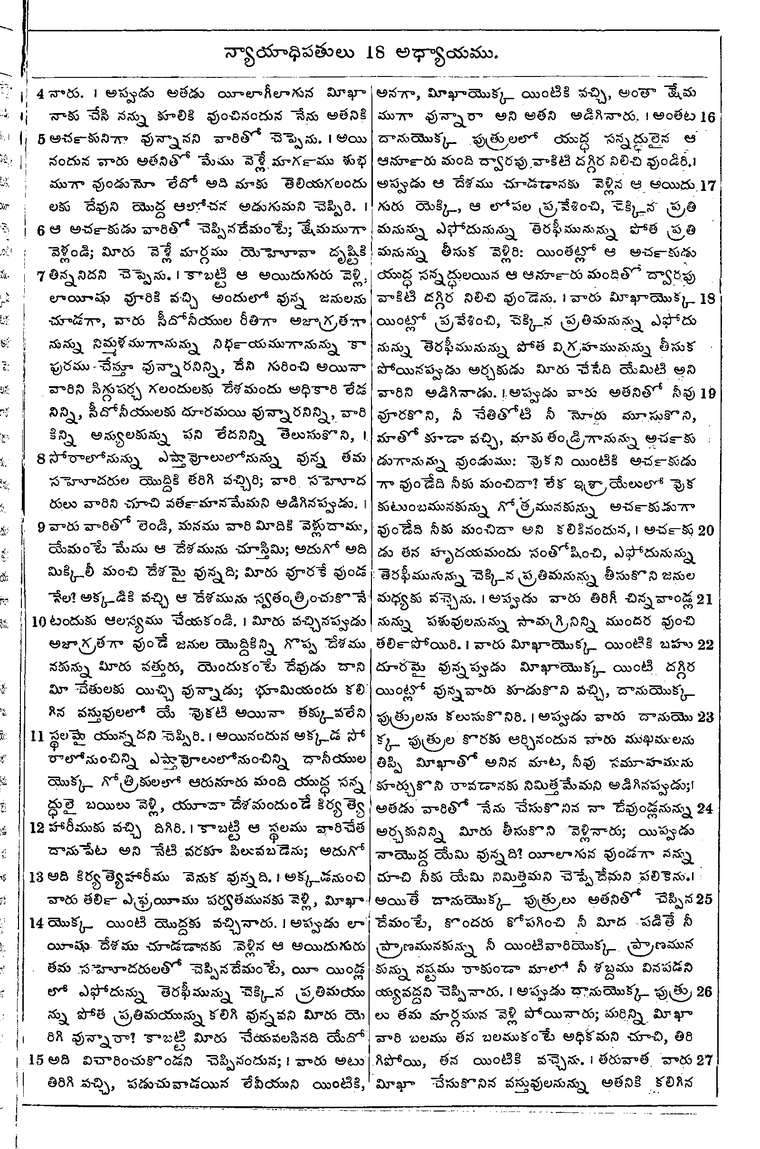 న్యాయాధిపతులు 18 అధ్యాయము.
4 నారు. । అప్పుడు అతడు యీలాగీలాగున మీఖా
నాకు చేసి నన్ను కూలికి వుంచినందున నేను అతనికి
5 అర్చకునిగా వున్నానని వారితో చెప్పెను. । అయి
నందున వారు అతనితో మేము వెళ్లే మార్గము శుభ
ముగా వుండునో లేదో అది మాకు తెలియగలందు
లకు దేవుని యొద్ద ఆలోచన అడుగుమని చెప్పిరి. ।
6 ఆ అర్చకుడు వారితో చెప్పినదేమంటే; క్షేమముగా
వెళ్లండి; మీరు వెళ్లే మార్గము యెహోవా దృష్టికి
7 తిన్ననిదని చెప్పెను. । కాబట్టి ఆ అయిదుగురు వెళ్లి,
లాయీషు వూరికి వచ్చి అందులో వున్న జనులను
చూడగా, వారు సీదోనీయుల రీతిగా అజాగ్రతగా
నున్ను నిమ్మళముగానున్ను నిర్భయముగానున్ను కా
పురము చేస్తూ వున్నారనిన్ని, దేని గురించి అయినా
వారిని సిగ్గుపర్చ గలందులకు దేశమందు అధికారి లేడ
నిన్ని, సీదోనీయులకు దూరమయి వున్నారనిన్ని, వారి
కిన్ని అన్యులకున్ను పని లేదనిన్ని తెలుసుకొని, ।
8 సోరాలోనున్ను ఎష్తావోలులోనున్ను వున్న తమ
సహోదరుల యొద్దికి తిరిగి వచ్చిరి; వారి సహోద
రులు వారిని చూచి వర్తమానమేమని అడిగినప్పుడు. ।
9 వారు వారితో లెండి, మనము వారి మీదికి వెళ్లుదాము,
యేమంటే మేము ఆ దేశమును చూస్తిమి; అదుగో అది
మిక్కిలీ మంచి దేశమై వున్నది; మీరు వూరకే వుండ
నేల? అక్కడికి వచ్చి ఆ దేశమును స్వతంత్రించుకొనే
10 టందుకు ఆలస్యము చేయకండి. । మీరు వచ్చినప్పుడు
అజాగ్రతగా వుండే జనుల యొద్దికిన్ని గొప్ప దేశము
నకున్ను మీరు వత్తురు, యెందుకంటే దేవుడు దాని
మీ చేతులకు యిచ్చి వున్నాడు; భూమియందు కలి
గిన వస్తువులలో యే వొకటి అయినా తక్కువలేని
11 స్థలమై యున్నదని చెప్పిరి. । అయినందున అక్కడ సో
రాలోనుంచిన్ని ఎష్తావోలులోనుంచిన్ని దానీయుల
యొక్క గోత్రికులలో ఆరునూరు మంది యుద్ధ సన్న
ద్ధులై బయిలు వెళ్లి, యూదా దేశమందుండే కిర్యత్యె
12 హారీముకు వచ్చి దిగిరి. । కాబట్టి ఆ స్థలము వారిచేత
దానుపేట అని నేటి వరకూ పిలువబడెను; అదుగో
13 అది కిర్యత్యెహారీము వెనుక వున్నది. । అక్కడనుంచి
వారు తర్లి ఎఫ్రయీము పర్వతమునకు వెళ్లి, మీఖా
14 యొక్క యింటి యొద్దకు వచ్చినారు. । అప్పుడు లా
యీషు దేశము చూడడానకు వెళ్లిన ఆ అయిదుగురు
తమ సహోదరులతో చెప్పినదేమంటే, యీ యిండ్ల
లో ఎఫోదున్ను తెరఫీమున్ను చెక్కిన ప్రతిమయు
న్ను పోత ప్రతిమయున్ను కలిగి వున్నవని మీరు యె
రిగి వున్నారా? కాబట్టి మీరు చేయవలసినది యేదో
15 అది విచారించుకొండని చెప్పినందున; । వారు అటు
తిరిగి వచ్చి, పడుచువాడయిన లేవీయుని యింటికి,
అనగా, మీఖాయొక్క యింటికి వచ్చి, అంతా క్షేమ
ముగా వున్నారా అని అతని అడిగినారు. । అంతట 16
దానుయొక్క పుత్రులలో యుద్ధ సన్నద్ధులైన ఆ
ఆనూరు మంది ద్వారపు వాకిటి దగ్గిర నిలిచి వుండిరి. ।
అప్పుడు ఆ దేశము చూడడానకు వెళ్లిన ఆ అయిదు 17
గురు యెక్కి, ఆ లోపల ప్రవేశించి, చెక్కిన ప్రతి
మనున్ను ఎఫోదునున్ను తెరఫీమునున్ను పోత ప్రతి
మనున్ను తీసుక వెళ్లిరి: యింతట్లో ఆ అర్చకుడు
యుద్ధ సన్నద్ధులయిన ఆ ఆనూరు మందితో ద్వారపు
వాకిటి దగ్గిర నిలిచి వుండెను. । వారు మీఖాయొక్క 18
యింట్లో ప్రవేశించి, చెక్కిన ప్రతిమనున్ను ఎఫోదు
నున్ను తెరఫీమునున్ను పోత విగ్రహమునున్ను తీసుక
పోయినప్పుడు అర్చకుడు మీరు చేసేది యేమిటి అని
వారిని అడిగినాడు. । అప్పుడు వారు అతనితో నీవు 19
వూరకొని, నీ చేతితోటి నీ నోరు మూసుకొని,
మాతో కూడా వచ్చి, మాకు తండ్రిగానున్ను అర్చకు
డుగానున్ను వుండుము: వొకని యింటికి అర్చకుడు
గా వుండేది నీకు మంచిదా? లేక ఇశ్రాయేలులో వొక
కుటుంబమునకున్ను గోత్రమునకున్ను అర్చకుడుగా
వుండేది నీకు మంచిదా అని కలికినందున, । అర్చకు 20
డు తన హృదయమందు సంతోషించి, ఎఫోదునున్ను
తెరఫీమునున్ను చెక్కిన ప్రతిమనున్ను తీసుకొని జనుల
మధ్యకు వచ్చెను. । అప్పుడు వారు తిరిగీ చిన్నవాండ్ల 21
నున్ను పశువులనున్ను సామగ్రినిన్ని ముందర వుంచి
తర్లిపోయిరి. । వారు మీఖాయొక్క యింటికి బహు 22
దూరమై వున్నప్పుడు మీఖాయొక్క యింటి దగ్గిర
యింట్లో వున్నవారు కూడుకొని వచ్చి, దానుయొక్క
పుత్రులను కలుసుకొనిరి. । అప్పుడు వారు దానుయొ 23
క్క పుత్రుల కొరకు ఆర్చినందున వారు ముఖములను
తిప్పి మీఖాతో అనిన మాట, నీవు సమూహమును
కూర్చుకొని రావడానకు నిమిత్తమేమని అడిగినప్పుడు; ।
అతడు వారితో నేను చేసుకొనిన నా దేవుండ్లనున్ను 24
అర్చకునిన్ని మీరు తీసుకొని వెళ్లినారు; యిప్పుడు
నాయొద్ద యేమి వున్నది? యీలాగున వుండగా నన్ను
చూచి నీకు యేమి నిమిత్తమని చెప్పేదేమని పలికెను. ।
అయితే దానుయొక్క పుత్రులు అతనితో చెప్పిన 25
దేమంటే, కొందరు కోపగించి నీ మీద పడితే నీ
ప్రాణమునకున్ను నీ యింటివారియొక్క ప్రాణమున
కున్ను నష్టము రాకుండా మాలో నీ శబ్దము వినపడని
య్యవద్దని చెప్పినారు. । అప్పుడు దానుయొక్క పుత్రు 26
లు తమ మార్గమున వెళ్లి పోయినారు; మరిన్ని మీఖా
వారి బలము తన బలముకంటే అధికమని చూచి, తిరి
గిపోయి, తన యింటికి వచ్చెను. । తరువాత వారు 27
మీఖా చేసుకొనిన వస్తువులనున్ను అతనికి కలిగిన